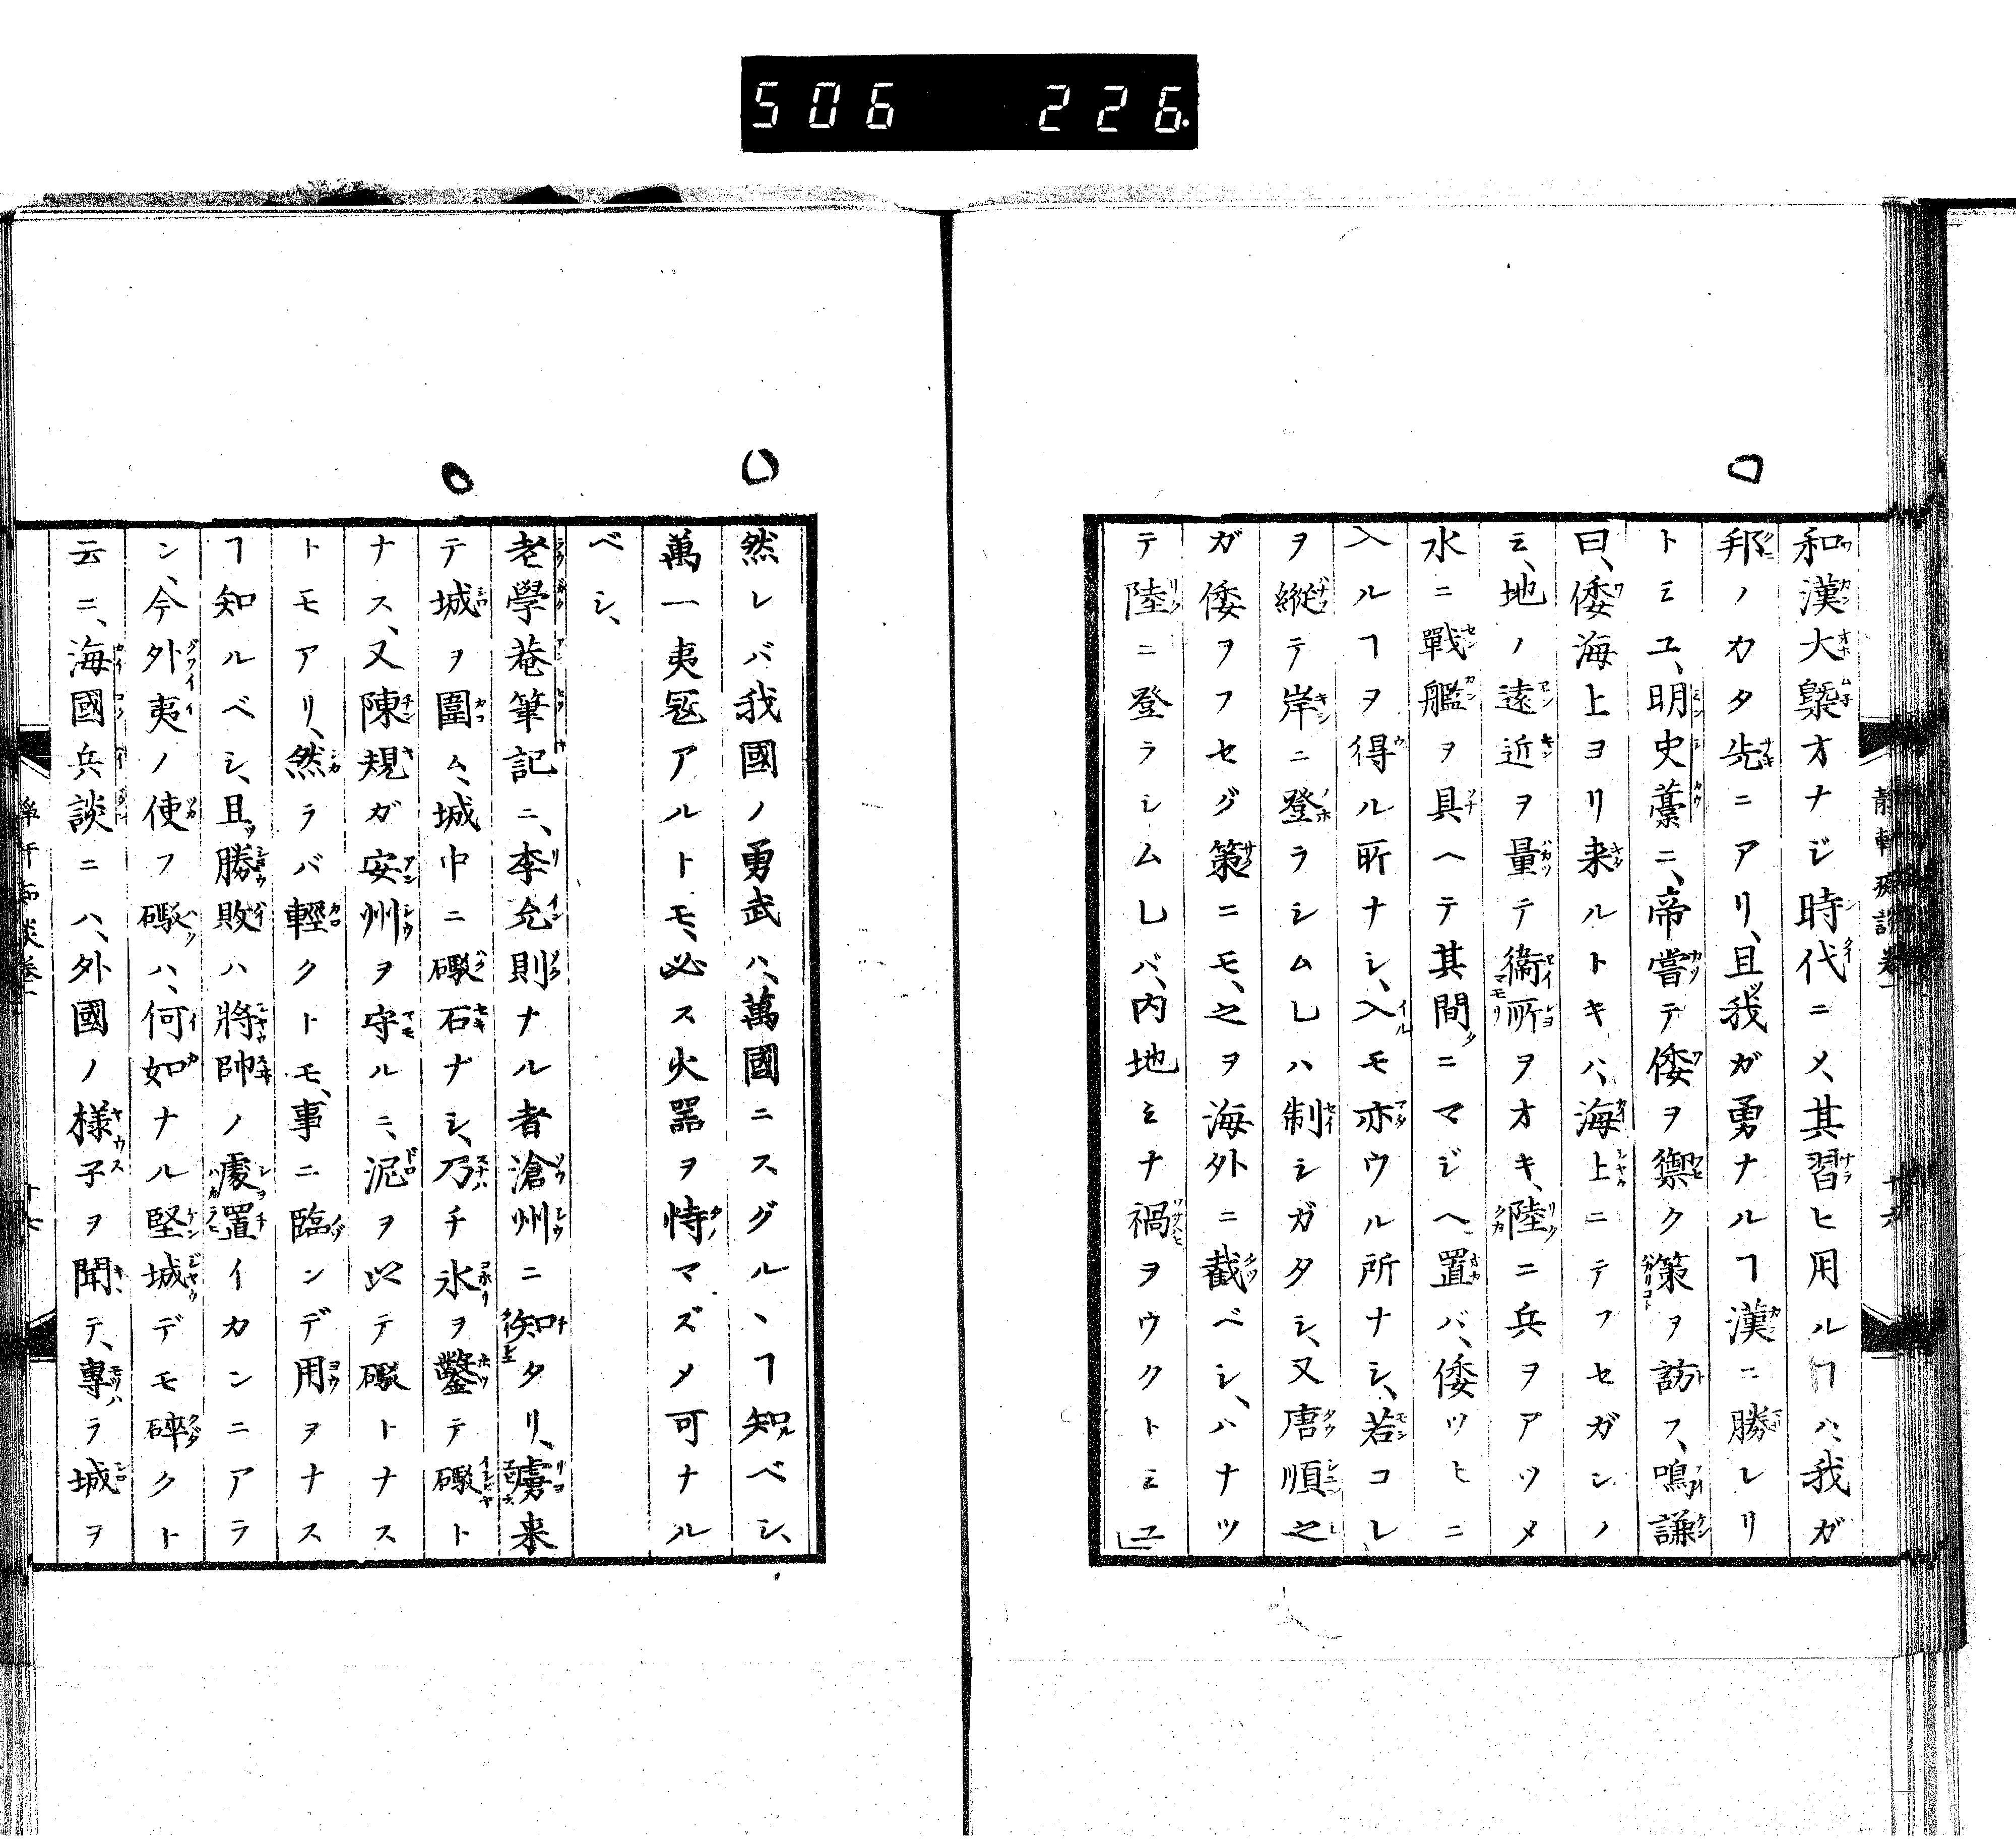 506 226
和漢大槩オナジ時代ニメ、其習ヒ用ルヿハ、我ガ
邦ノカタ先ニアリ、且我ガ勇ナルヿ漢ニ勝レリ
トミユ、明史藁ニ、帝嘗テ倭ヲ禦ク策ヲ訪フ、鳴謙
曰、倭海上ヨリ来ルトキハ、海上ニテフセガンノ
ミ、地ノ遠近ヲ量テ衞所ヲオキ、陸ニ兵ヲアツメ
水ニ戰艦ヲ具ヘテ其間ニマジヘ置バ、倭ツヒニ
入ルヿヲ得ル所ナシ、入モ亦ウル所ナシ、若コレ
ヲ縱テ岸ニ登ラシムレハ制シガタシ、又唐順之
ガ倭ヲフセグ策ニモ、之ヲ海外ニ截ベシ、ハナツ
テ陸ニ登ラシムレバ、内地ミナ禍ヲウクトミユ
然レバ我國ノ勇武ハ、萬國ニスグルヽヿ知ベシ、
萬一夷冦アルトモ、必ス火器ヲ恃マズメ可ナル
ベシ、
老學菴筆記ニ、李允則ナル者滄州ニ知タリ、虜来
テ城ヲ圍ム、城中ニ礮石ナシ、乃チ氷ヲ鑿テ礮ト
ナス、又陳規ガ安州ヲ守ルニ、泥ヲ以テ礮トナス
トモアリ、然ラバ輕クトモ、事ニ臨ンデ用ヲナス
ヿ知ルベシ、且勝敗ハ將帥ノ處置イカンニアラ
ン、今外夷ノ使フ礮ハ、何如ナル堅城デモ碎クト
云ニ、海國兵談ニハ、外國ノ様子ヲ聞テ、專ラ城ヲ